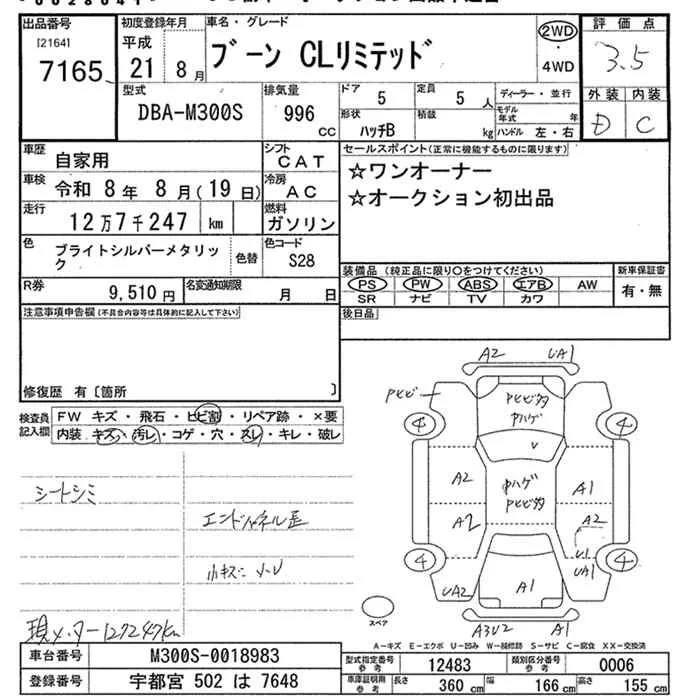 出品番号
[2164]
7165
初度登録年月
平成
21年 8月
車名・グレード
ブーン CLリミテッド
2WD
・
4WD
評価点
3.5
外装 内装
D C
型式
DBA-M300S
排気量
996 CC
ドア 5
定員 5人
形状 ハッチB
積載 kg
ディーラー・並行
モデル年式 年
ハンドル 左・右
車歴
自家用
シフト
CAT
車検
令和 8年 8月(19日)
冷房
AC
走行
12万7千247 km
燃料
ガソリン
色
ブライトシルバーメタリック
色替
色コード
S28
R券
9,510円
名変通知期限
月 日
セールスポイント(正常に機能するものに限ります)
☆ワンオーナー
☆オークション初出品
装備品(純正品に限り〇をつけてください)
PS PW ABS エアB AW
SR ナビ TV カワ
新車保証書
有・無
後日品
注意事項申告欄(不具合内容等は具体的に記入して下さい)
修復歴 有〔箇所 〕
検査員記入欄
FW キズ・飛石・ヒビ割・リペア跡・×要
内装 キズ・汚レ・コゲ・穴・スレ・キレ・破レ
シートシミ
エンドパネル歪
小キズ・小U
現メーター127247km
A2
UA1
Pヒビ
Pヒビ多
Pハゲ
4
4
V
A2
Pハゲ
Pヒビ多
A1
A2
A2
U1
4
4
UA2
UA1
A1
スペア
A3U2
A1
A-キズ E-エクボ U-凹み W-補修跡 S-サビ C-腐食 XX-交換済
車台番号
M300S-0018983
登録番号
宇都宮 502 は 7648
型式指定番号
参考
12483
類別区分番号
参考
0006
車庫証明用
参考
長さ 360 cm
幅 166 cm
高さ 155 cm